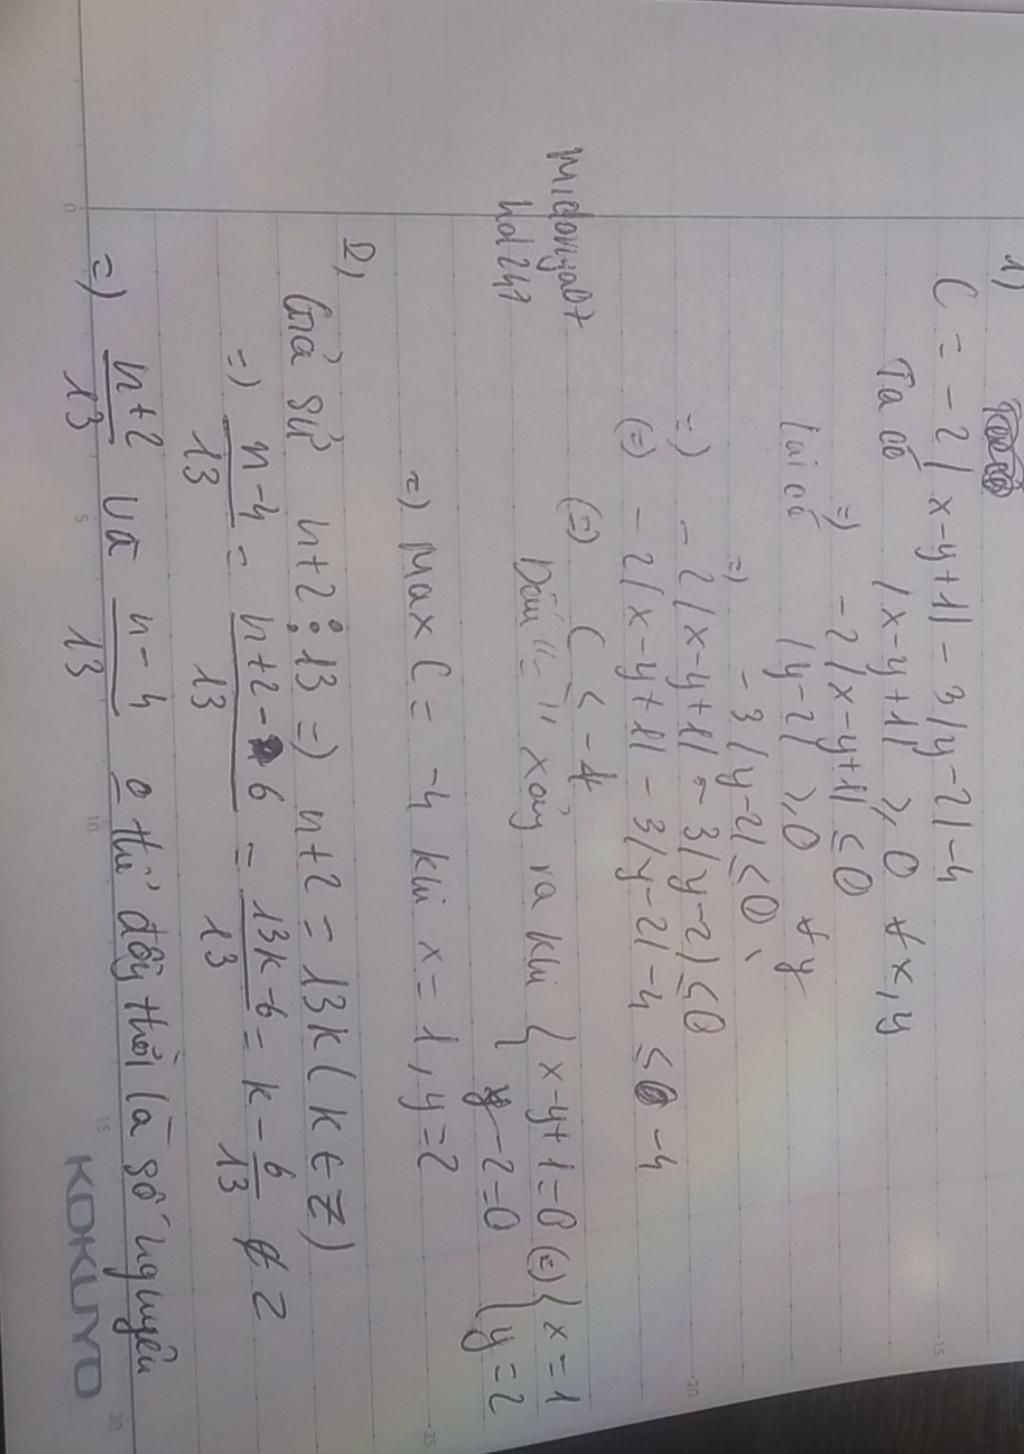 1)
C = -2|x-y+1| - 3|y-2| -4
Ta có |x-y+1| ≥ 0 ∀x,y
=) -2|x-y+1| ≤ 0
lại có |y-2| ≥ 0 ∀y
=) -3|y-2| ≤ 0
=) -2|x-y+1| - 3|y-2| ≤ 0
(=) -2|x-y+1| - 3|y-2| -4 ≤ -4
(=) C ≤ -4
Dấu "=" xảy ra khi { x-y+1=0 (=) { x=1
y-2=0 { y=2
=) Max C = -4 khi x=1, y=2
hd247
2,
Giả sử n+2 ⋮ 13 =) n+2 = 13k (k ∈ Z)
=) n-4/13 = n+2-6/13 = 13k-6/13 = k - 6/13 ∉ Z
=) n+2/13 và n-4/13 o thể đồng thời là số nguyên
0
5
10
15
20
-15
-20
-25
KOKUYO